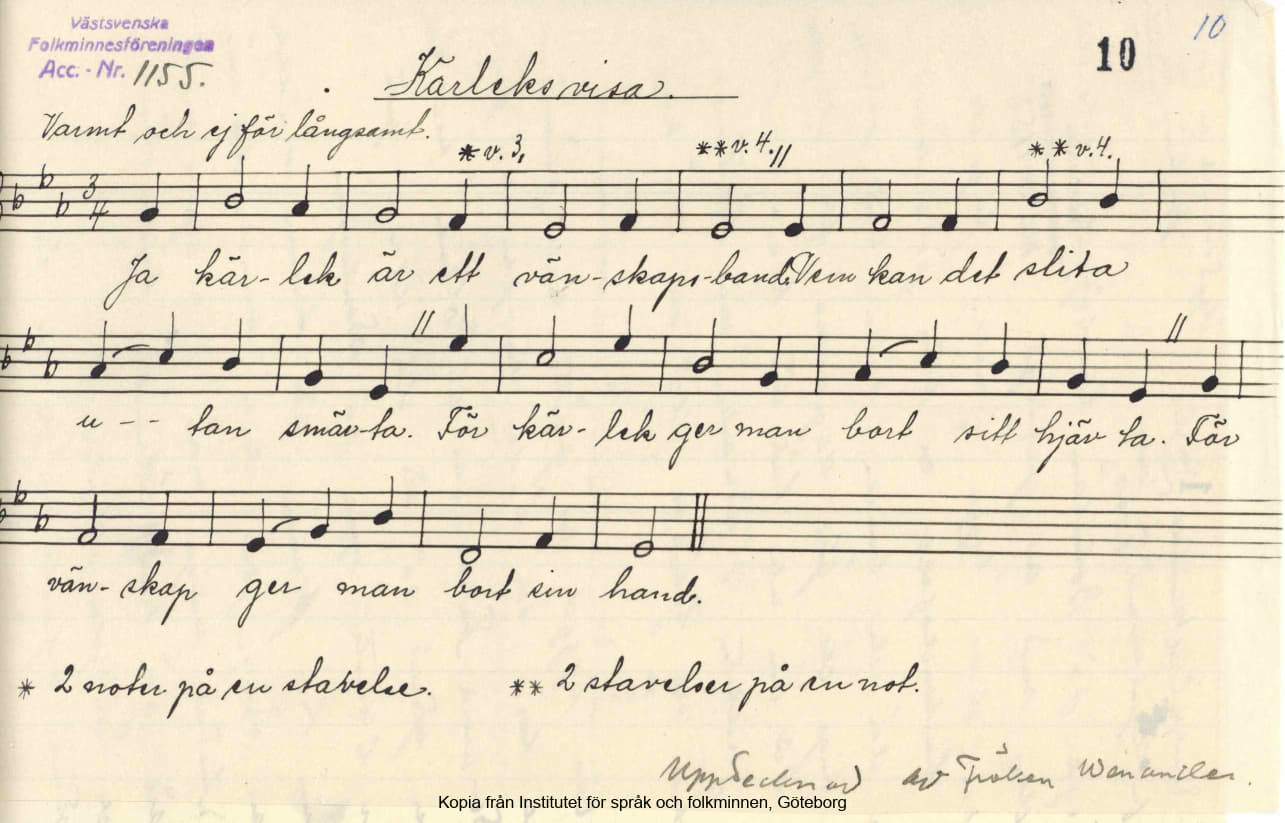 Västsvenska
Folkminnesföreningen
Acc. - Nr. 1155.
10
10
Kärleksvisa.
Varmt och ej för långsamt.
* v. 3.
** v. 4.
** v. 4.
3
4
Ja kär- lek är ett vän-skaps-band. Vem kan det slita
u - - tan smär-ta. För kär- lek ger man bort sitt hjär ta. För
vän- skap ger man bort sin hand.
* 2 noter på en stavelse. ** 2 stavelser på en not.
Upptecknad av Fröken
Kopia från Institutet för språk och folkminnen, Göteborg